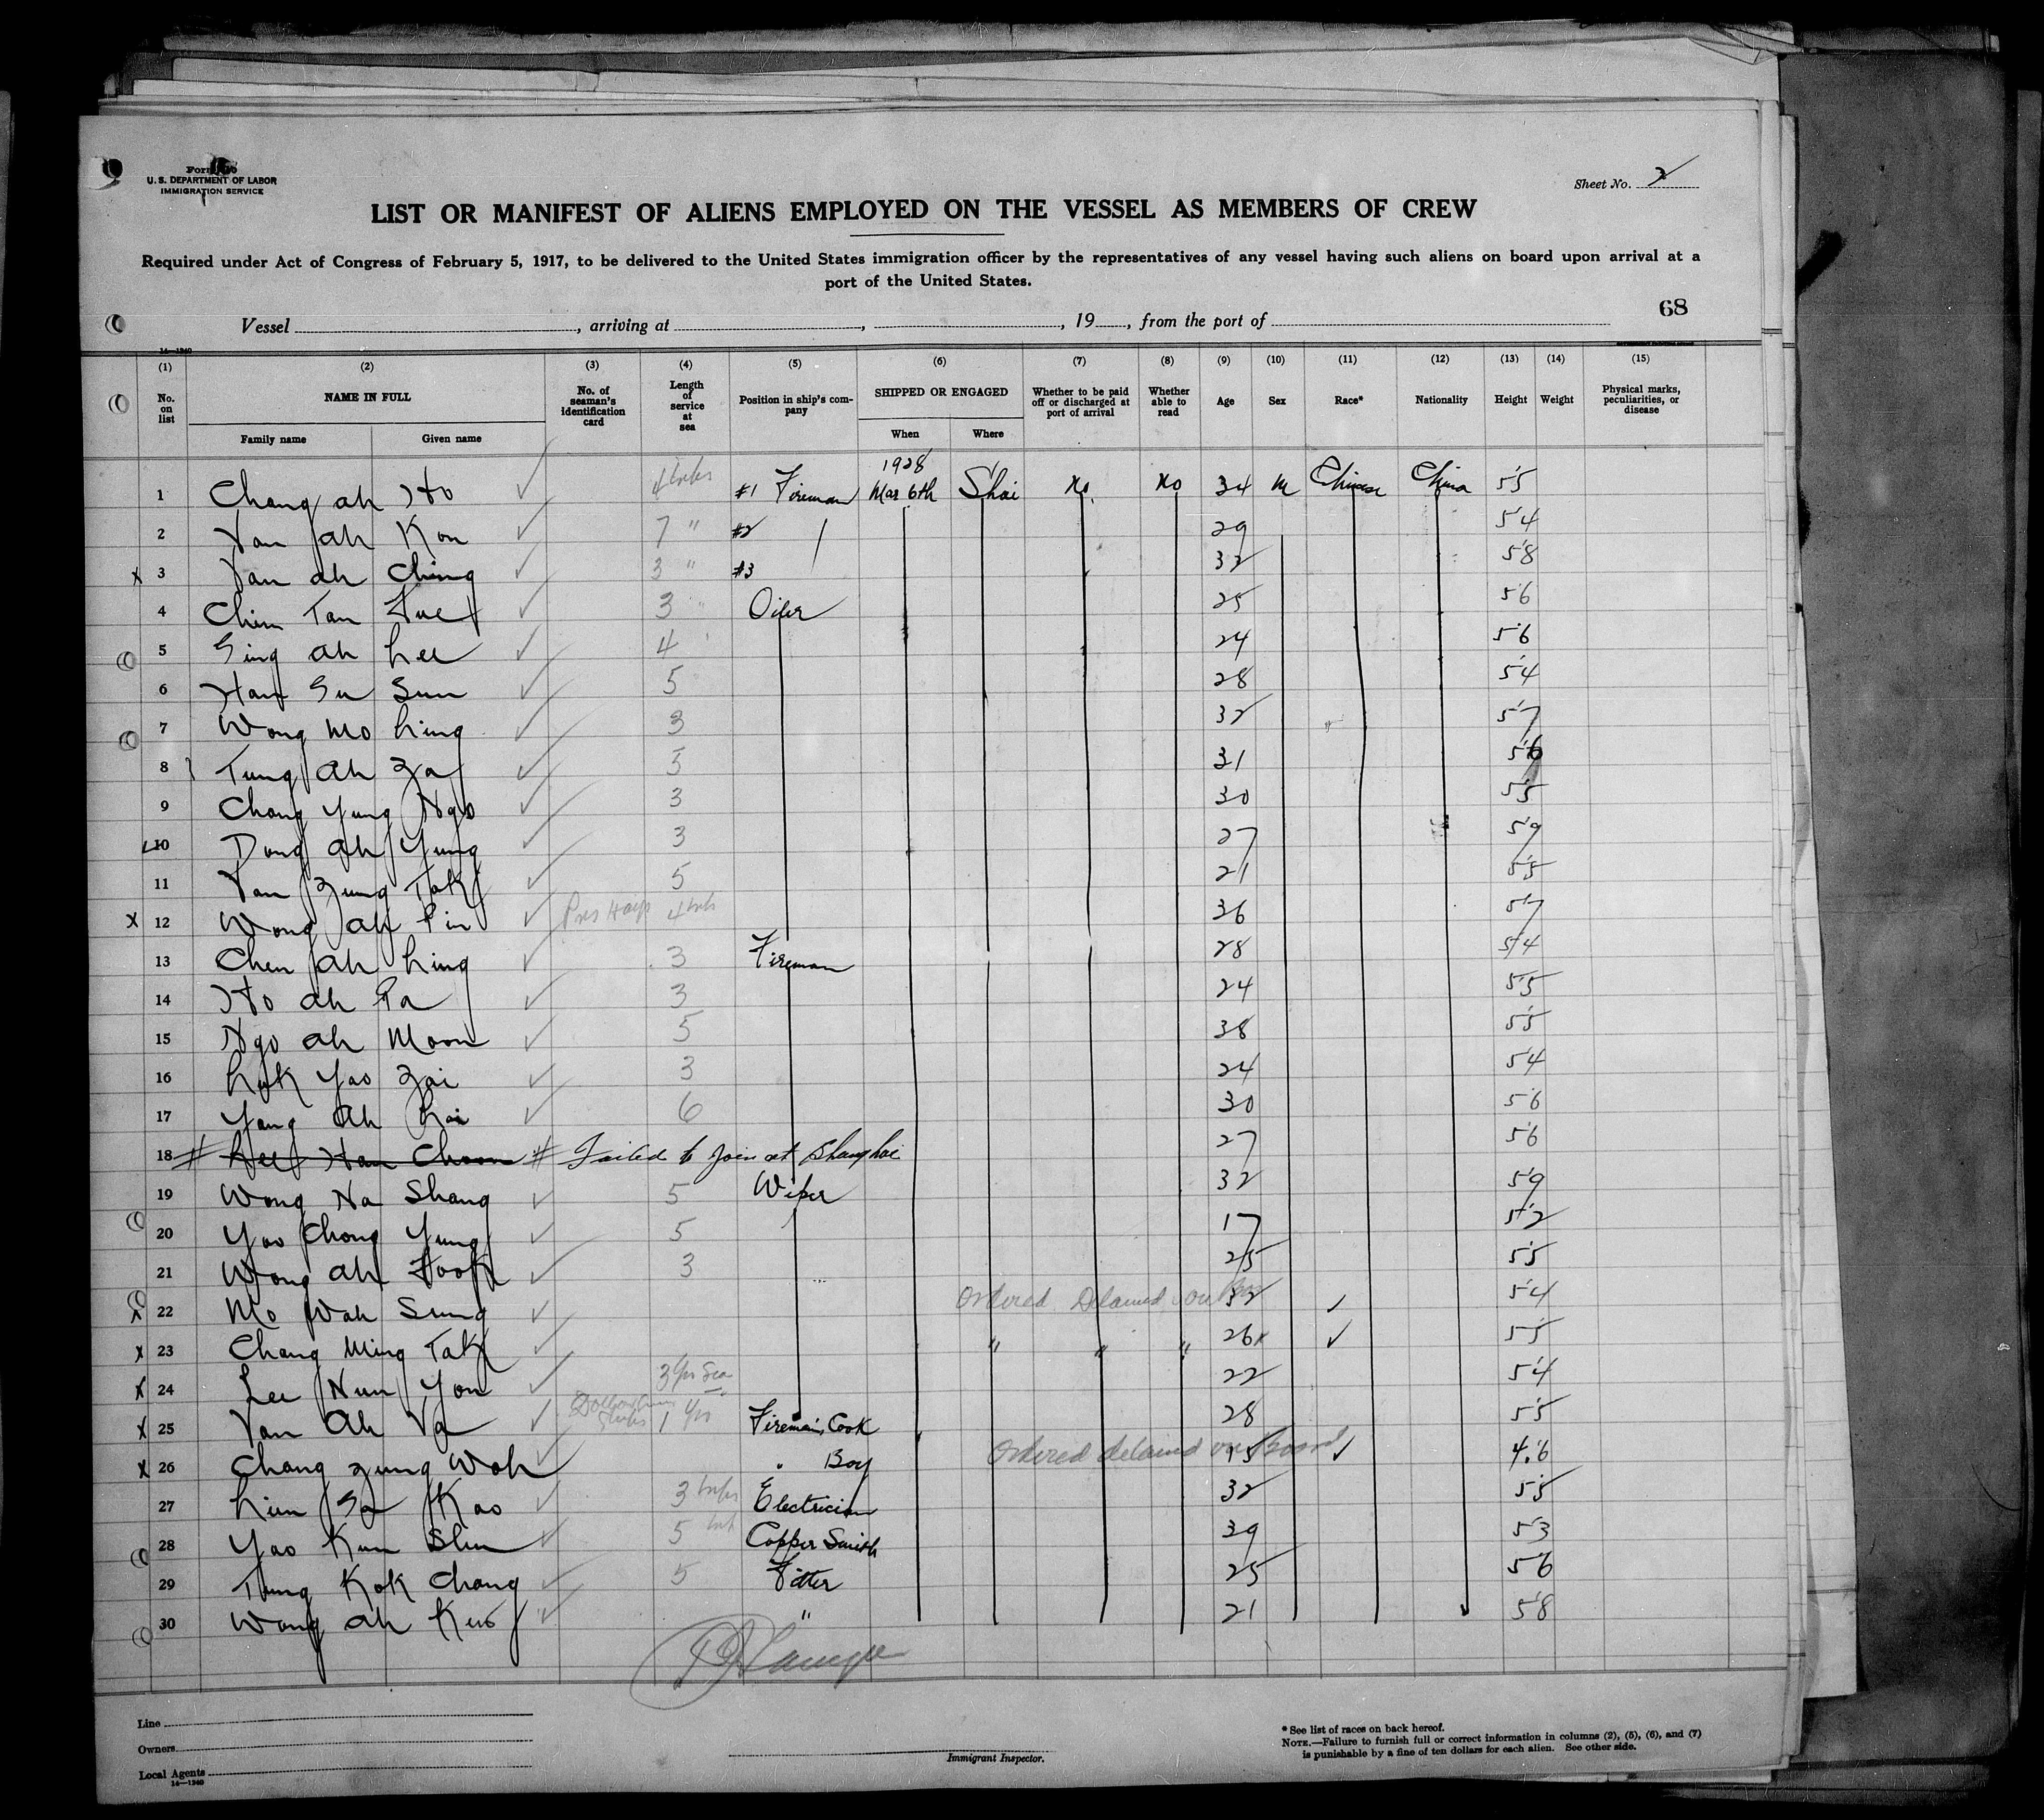 Form 680
U. S. DEPARTMENT OF LABOR
IMMIGRATION SERVICE
Sheet No. 2
LIST OR MANIFEST OF ALIENS EMPLOYED ON THE VESSEL AS MEMBERS OF CREW
Required under Act of Congress of February 5, 1917, to be delivered to the United States immigration officer by the representatives of any vessel having such aliens on board upon arrival at a
port of the United States.
68
Vessel , arriving at , , 19 , from the port of
14—1240
(1) (2) (3) (4) (5) (6) (7) (8) (9) (10) (11) (12) (13) (14) (15)
No. on list NAME IN FULL No. of seaman's identification card Length of service at sea Position in ship's company SHIPPED OR ENGAGED Whether to be paid off or discharged at port of arrival Whether able to read Age Sex Race* Nationality Height Weight Physical marks, peculiarities, or disease
Family name Given name When Where
1928
1 Chang ah Ho ✓ #1 Fireman Mar 6th Shai No No 34 M Chinese China 5'5
2 Van ah Kon ✓ 7 " #2 29 5'4
x 3 Van ah Ching ✓ 3 " #3 32 5'8
4 Chin Tan Fue ✓ 3 " Oiler 25 5'6
5 Sing ah Lee ✓ 4 24 5'6
6 Han Su Sun ✓ 5 28 5'4
7 Wong Mo Ling ✓ 3 32 5'7
8 Tung ah Za ✓ 5 31 5'6
9 Chang Yung Ngo ✓ 3 30 5'5
10 Dong ah Yung ✓ 3 27 5'9
11 Van Zung Tak ✓ 5 21 5'5
x 12 Wong ah Pin ✓ Pres Hays 4 36 5'7
13 Chen ah Ling ✓ 3 Fireman 28 5'4
14 Ho ah Pa ✓ 3 24 5'5
15 Ngo ah Moon ✓ 5 38 5'5
16 Lok Yao Zai ✓ 3 24 5'4
17 Yang ah Kai ✓ 6 30 5'6
18 # Lee Han Choon # Failed to join at Shanghai 27 5'6
19 Wong Na Shang ✓ 5 Wiper 32 5'9
20 Yao Chong Yung ✓ 5 17 5'2
21 Wong ah Fook ✓ 3 25 5'5
x 22 Mo Wah Sung ✓ Ordered Detained on 32 ✓ 5'4
x 23 Chang Ming Tak ✓ " " " 26 x ✓ 5'5
x 24 Lee Nun You ✓ 3 yrs Sea 22 5'4
x 25 Van Ah Va ✓ 1 yr Fireman's Cook 28 5'5
x 26 Chang Zung Wah ✓ " Boy Ordered detained on board 15 ✓ 4'6
27 Lim Sa Kao ✓ 3 Electrician 32 5'5
28 Yao Kun Shu ✓ 5 Copper Smith 39 5'3
29 Tung Kok Chang ✓ 5 Fitter 25 5'6
30 Wong ah Kuo ✓ " 21 5'8
Line
Owners
Local Agents
14—1240
Immigrant Inspector.
*See list of races on back hereof.
NOTE.—Failure to furnish full or correct information in columns (2), (5), (6), and (7)
is punishable by a fine of ten dollars for each alien. See other side.